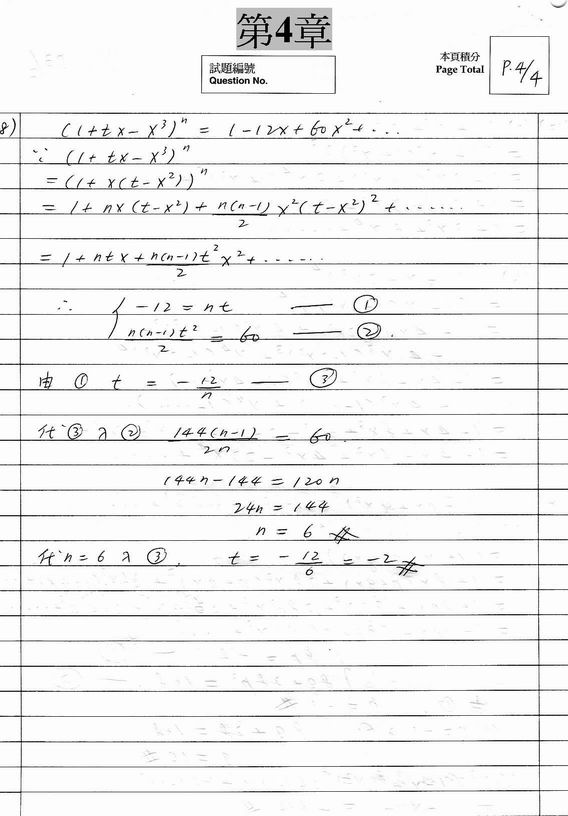 第4章
試題編號
Question No.
本頁積分
Page Total
P.4/4
8) (1+tx-x³)ⁿ = 1-12x+60x²+...
∵ (1+tx-x³)ⁿ
= (1+x(t-x²))ⁿ
= 1+nx(t-x²)+n(n-1)/2 x²(t-x²)²+......
= 1+ntx+n(n-1)t²/2 x²+......
∴ { -12 = nt —— ①
n(n-1)t²/2 = 60 —— ②.
由 ① t = -12/n —— ③
代 ③ 入 ② 144(n-1)/2n = 60.
144n-144 = 120n
24n = 144
n = 6 #
代 n=6 入 ③, t = -12/6 = -2 #